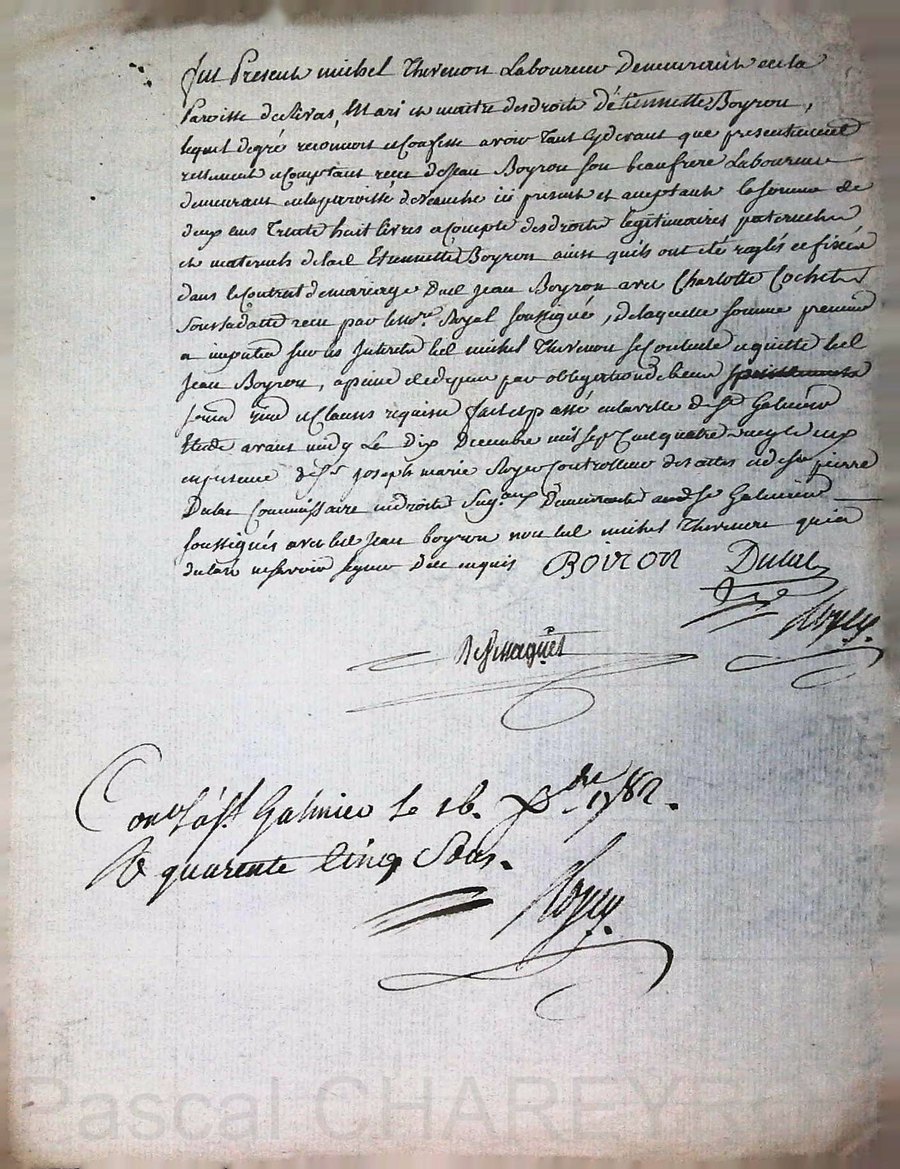 fut Present michel Thevenon Laboureur demeurant en la
Paroisse de Rivas, Mari et maitre des droits d'Etiennette Boyron,
lequel de gré reconnoit et confesse avoir tant cydevant que presentement
reellement et comptant recu de Jean Boyron son beaufrere Laboureur
demeurant en la paroisse de ici present et acceptant la somme de
deux cens Trente huit livres a compte des droits légitimaires paternels
et maternels de lad Etiennette Boyron ainsi qu'ils ont été reglés et fixés
dans le Contrat de mariage dud Jean Boyron avec Charlotte Cochet
sous sa datte recu par le No.re Royal soussigné, de laquelle somme premier
a imputer sur les Interets led michel Thevenon se Contente et quitte led
Jean Boyron, a peine de par obligation de biens
et Clauses requises fait et passé en la ville de St Galmier
Etude avant midy Le dix Decembre mil sept Cens quatre vingt deux
en presence de Sr joseph marie Royer Controlleur des actes et de Sr pierre
Dulac Commissaire en droits Seig.aux Demeurants aud St Galmier
soussignés avec led Jean boyron non led michel Thevenon qui a
declaré ne savoir signer de ce enquis BOIRON Dulac
Royer
Controllé à St. Galmier le 16. Xbre 1782.
R quarente Cinq Sous.
Royer
Pascal CHAREYR